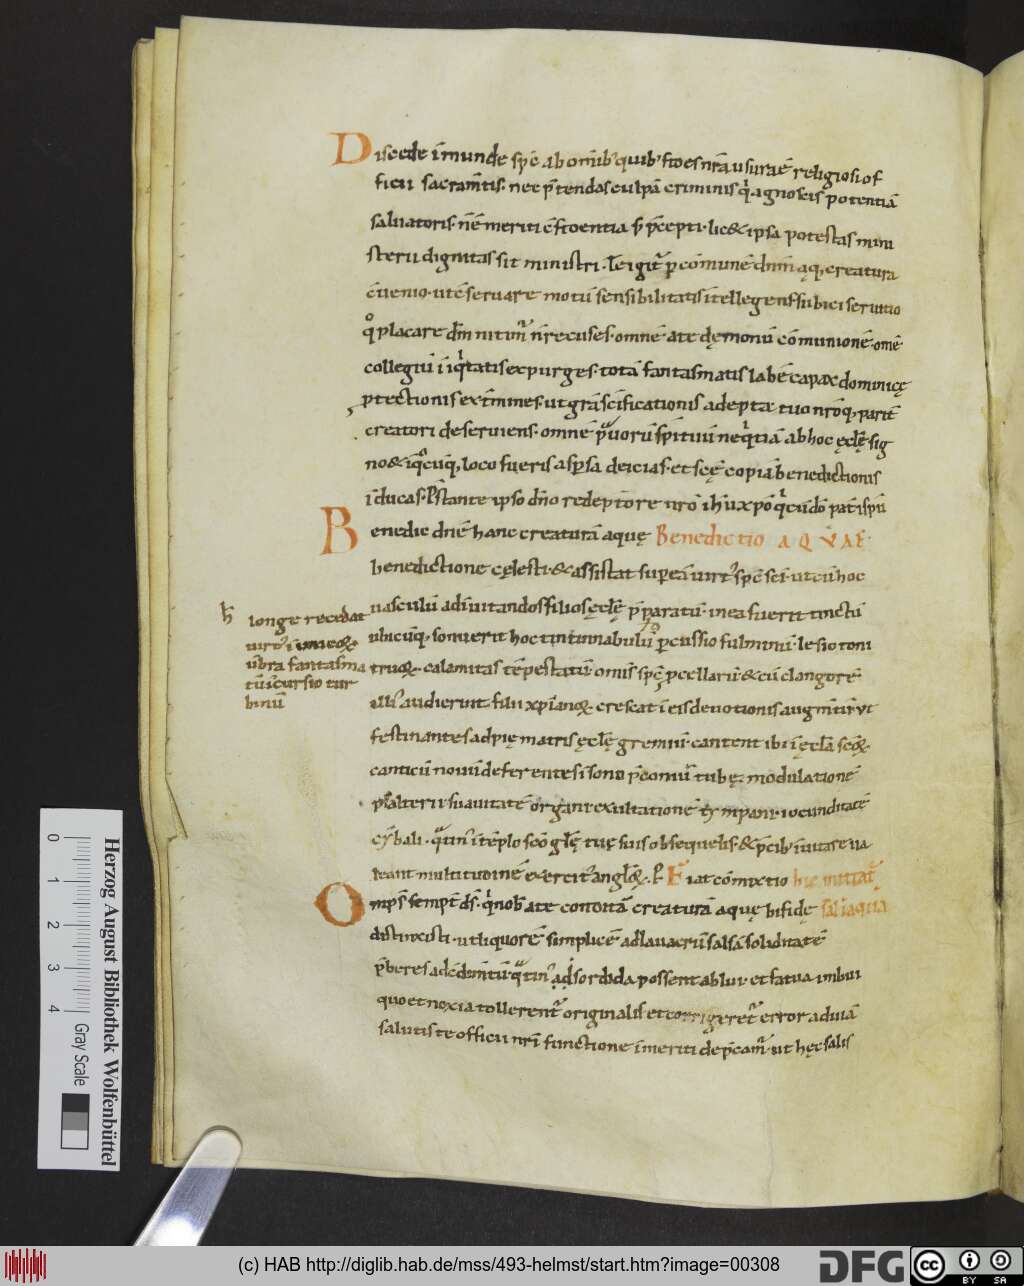 Discede īmunde sp̄c ab om̄ib; quib; ftoes nr̄a usurae religiosi of
ficii sacram̄tis. nec p̄tendas culpā criminis q̄ agnoscis potentiā
saluatoris. n̄ ē meriti c̄ftoentia s; p̄cepti. lic& ipsa potestas mini
sterii dignitas sit ministri. Te igit̄ p com̄une dn̄m aq; creatura
c̄uenio. ut c̄seruare motū sensibilitatis ītellegens subici seruitio
placare dn̄i nitim̄ n̄ recuses. omnē atē dęmonū cōmunionē. omē
collegiū iniq̄tatis expurges. totā fantasmatis labē capax dominicę
ptectionis extīmines. ut grā sc̄ificationis adepta tuo nr̄oq; parit̄
creatori deseruiens. omnē p̄uorū spīrituū neq̄tiā ab hoc ęcl̄ę sig
no & iq̄cūq; loco fueris aspsa deicias. et scę copiā benedictionis
īducas. Pstante ipso dn̄o redeptore nr̄o ihū xpo q̄ cū dō pat̄ & sp̄u
Benedic dn̄e hanc creaturā aquę Benedictio AQVAE.
benedictione cęlesti. & assistat sup eā uirt; sp̄c sc̄i. ut cū hoc
uasculū ad īuitandos filios ęcl̄ę p̄paratū. in ea fuerit tinctū
ubicūq; sonuerit hoc tintinnabulū p̄cussio fulminū. lesio toni
truoꝝ. calamitas tēpestatū. omīs sp̄c pcellarū. & cū clangorē
illi; audierint filii xpianoꝝ. crescat ī eis deuotionis augm̄tū. ut
festinantes ad pię matris ęcl̄ę gremiū. cantent ibi ī ęcl̄a sc̄oꝝ
canticū nouū deferentes ī sono p̄coniī tubę. modulationē
psalterii. suauitatē organi. exultationē tympani. iocunditatē
cȳbali. q̄tin; ī tēplo sco gl̄ę tuę suis obsequelis. & p̄cib; īuitare ua
leant multitudinē exercit; angl̄oꝝ. P Fiat cōmixtio hic mittat̄
Omps semp̄t ds. q̄ nob atē conditā creaturā aquę bifidę sal ī aqua
distinxisti. ut liquorē simplicē ad lauacrū salsā soliditatē
p̄beres ad cōdim̄tū. q̄tin; & sordida possent ablui. et fatua imbui
quo et noxia tollerent̄ originalis et corrigeret̄ error ad uiā
salutis te officii nr̄i functione īmeriti dep̄cam̄. ut hęc salis
h̄ longe recedat
uirt; inimicoꝝ
ūbra fantasma
tū īcursio tur
binū
Herzog August Bibliothek Wolfenbüttel
0 1 2 3 4
Gray Scale
(c) HAB http://diglib.hab.de/mss/493-helmst/start.htm?image=00308
DFG
cc BY SA